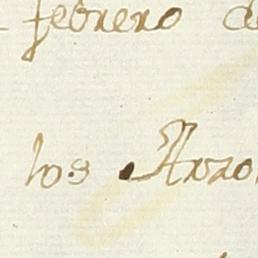 febrero de
los Arro